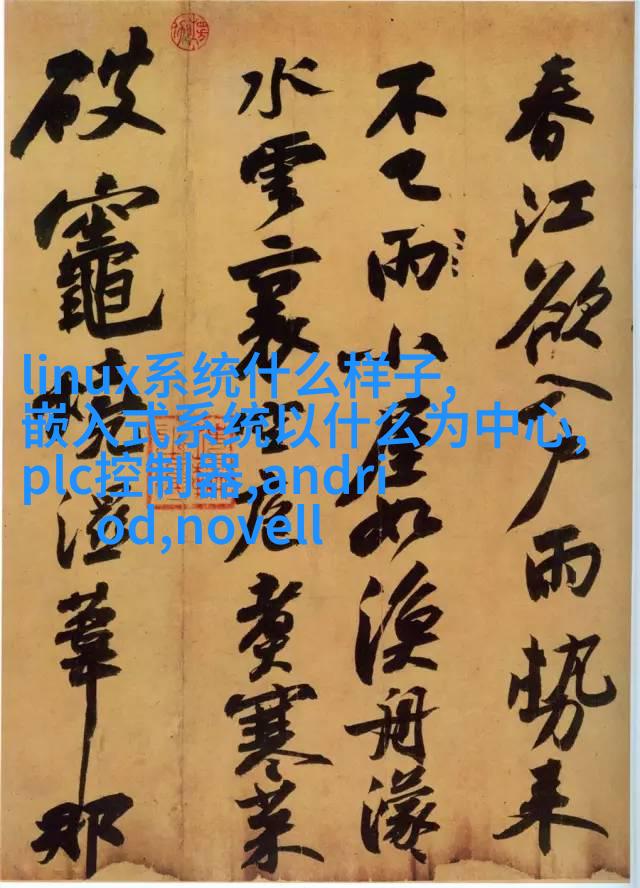 春江欲入户雨勢来
不已雨小屋如漁舟濛
水雲裏空庖煮寒菜
破竈燒濕葦那
linux系统什么样子,
嵌入式系统以什么为中心,
plc控制器,andri
od,novell